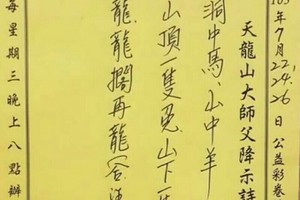 105年7月22,24,26日公益彩卷
天龍山大師父降示詩
洞中馬、山中羊
山頂一隻兎、山下一
龍龍擱再龍、答
每星期三晚上八點辦